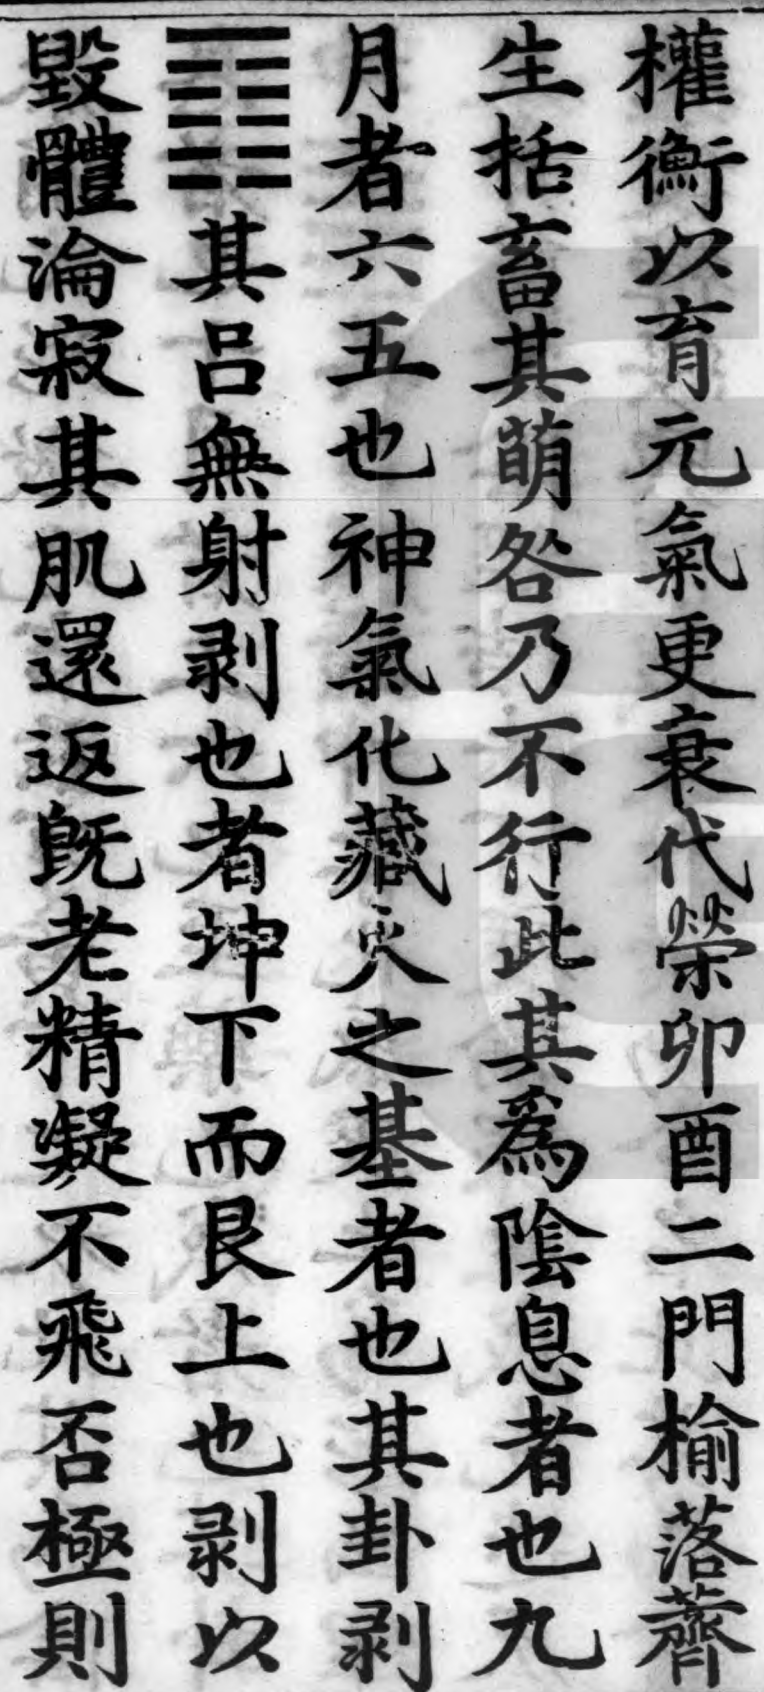 權衡以育元氣更衰代榮卯酉二門榆落薺
生括畜其萌咎乃不行此其爲陰息者也九
月者六五也神氣化藏火之基者也其卦剥
䷖其呂無射剥也者坤下而艮上也剥以
毀體淪寂其肌還返旣老精凝不飛否極則